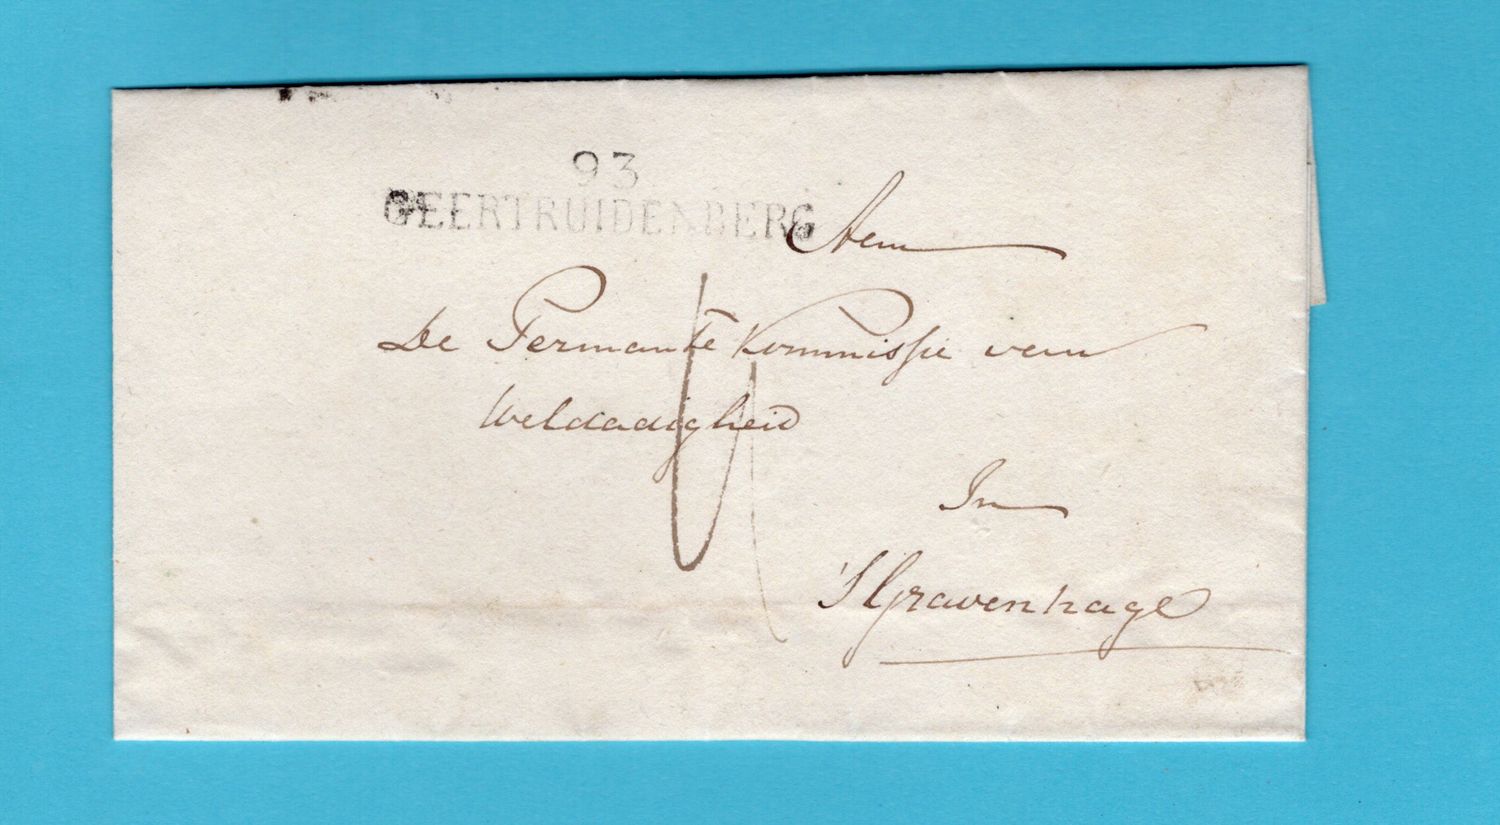 93
GEERTRUIDENBERG
Aen
De Permante Kommissie van
Weldadigheid
In
'S Gravenhage